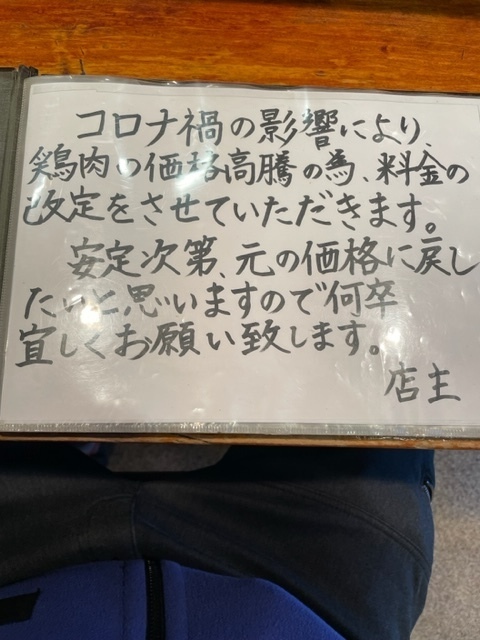 コロナ禍の影響により、
鶏肉の価格高騰の為、料金の
改定をさせていただきます。
安定次第、元の価格に戻し
たいと思いますので何卒
宜しくお願い致します。
店主